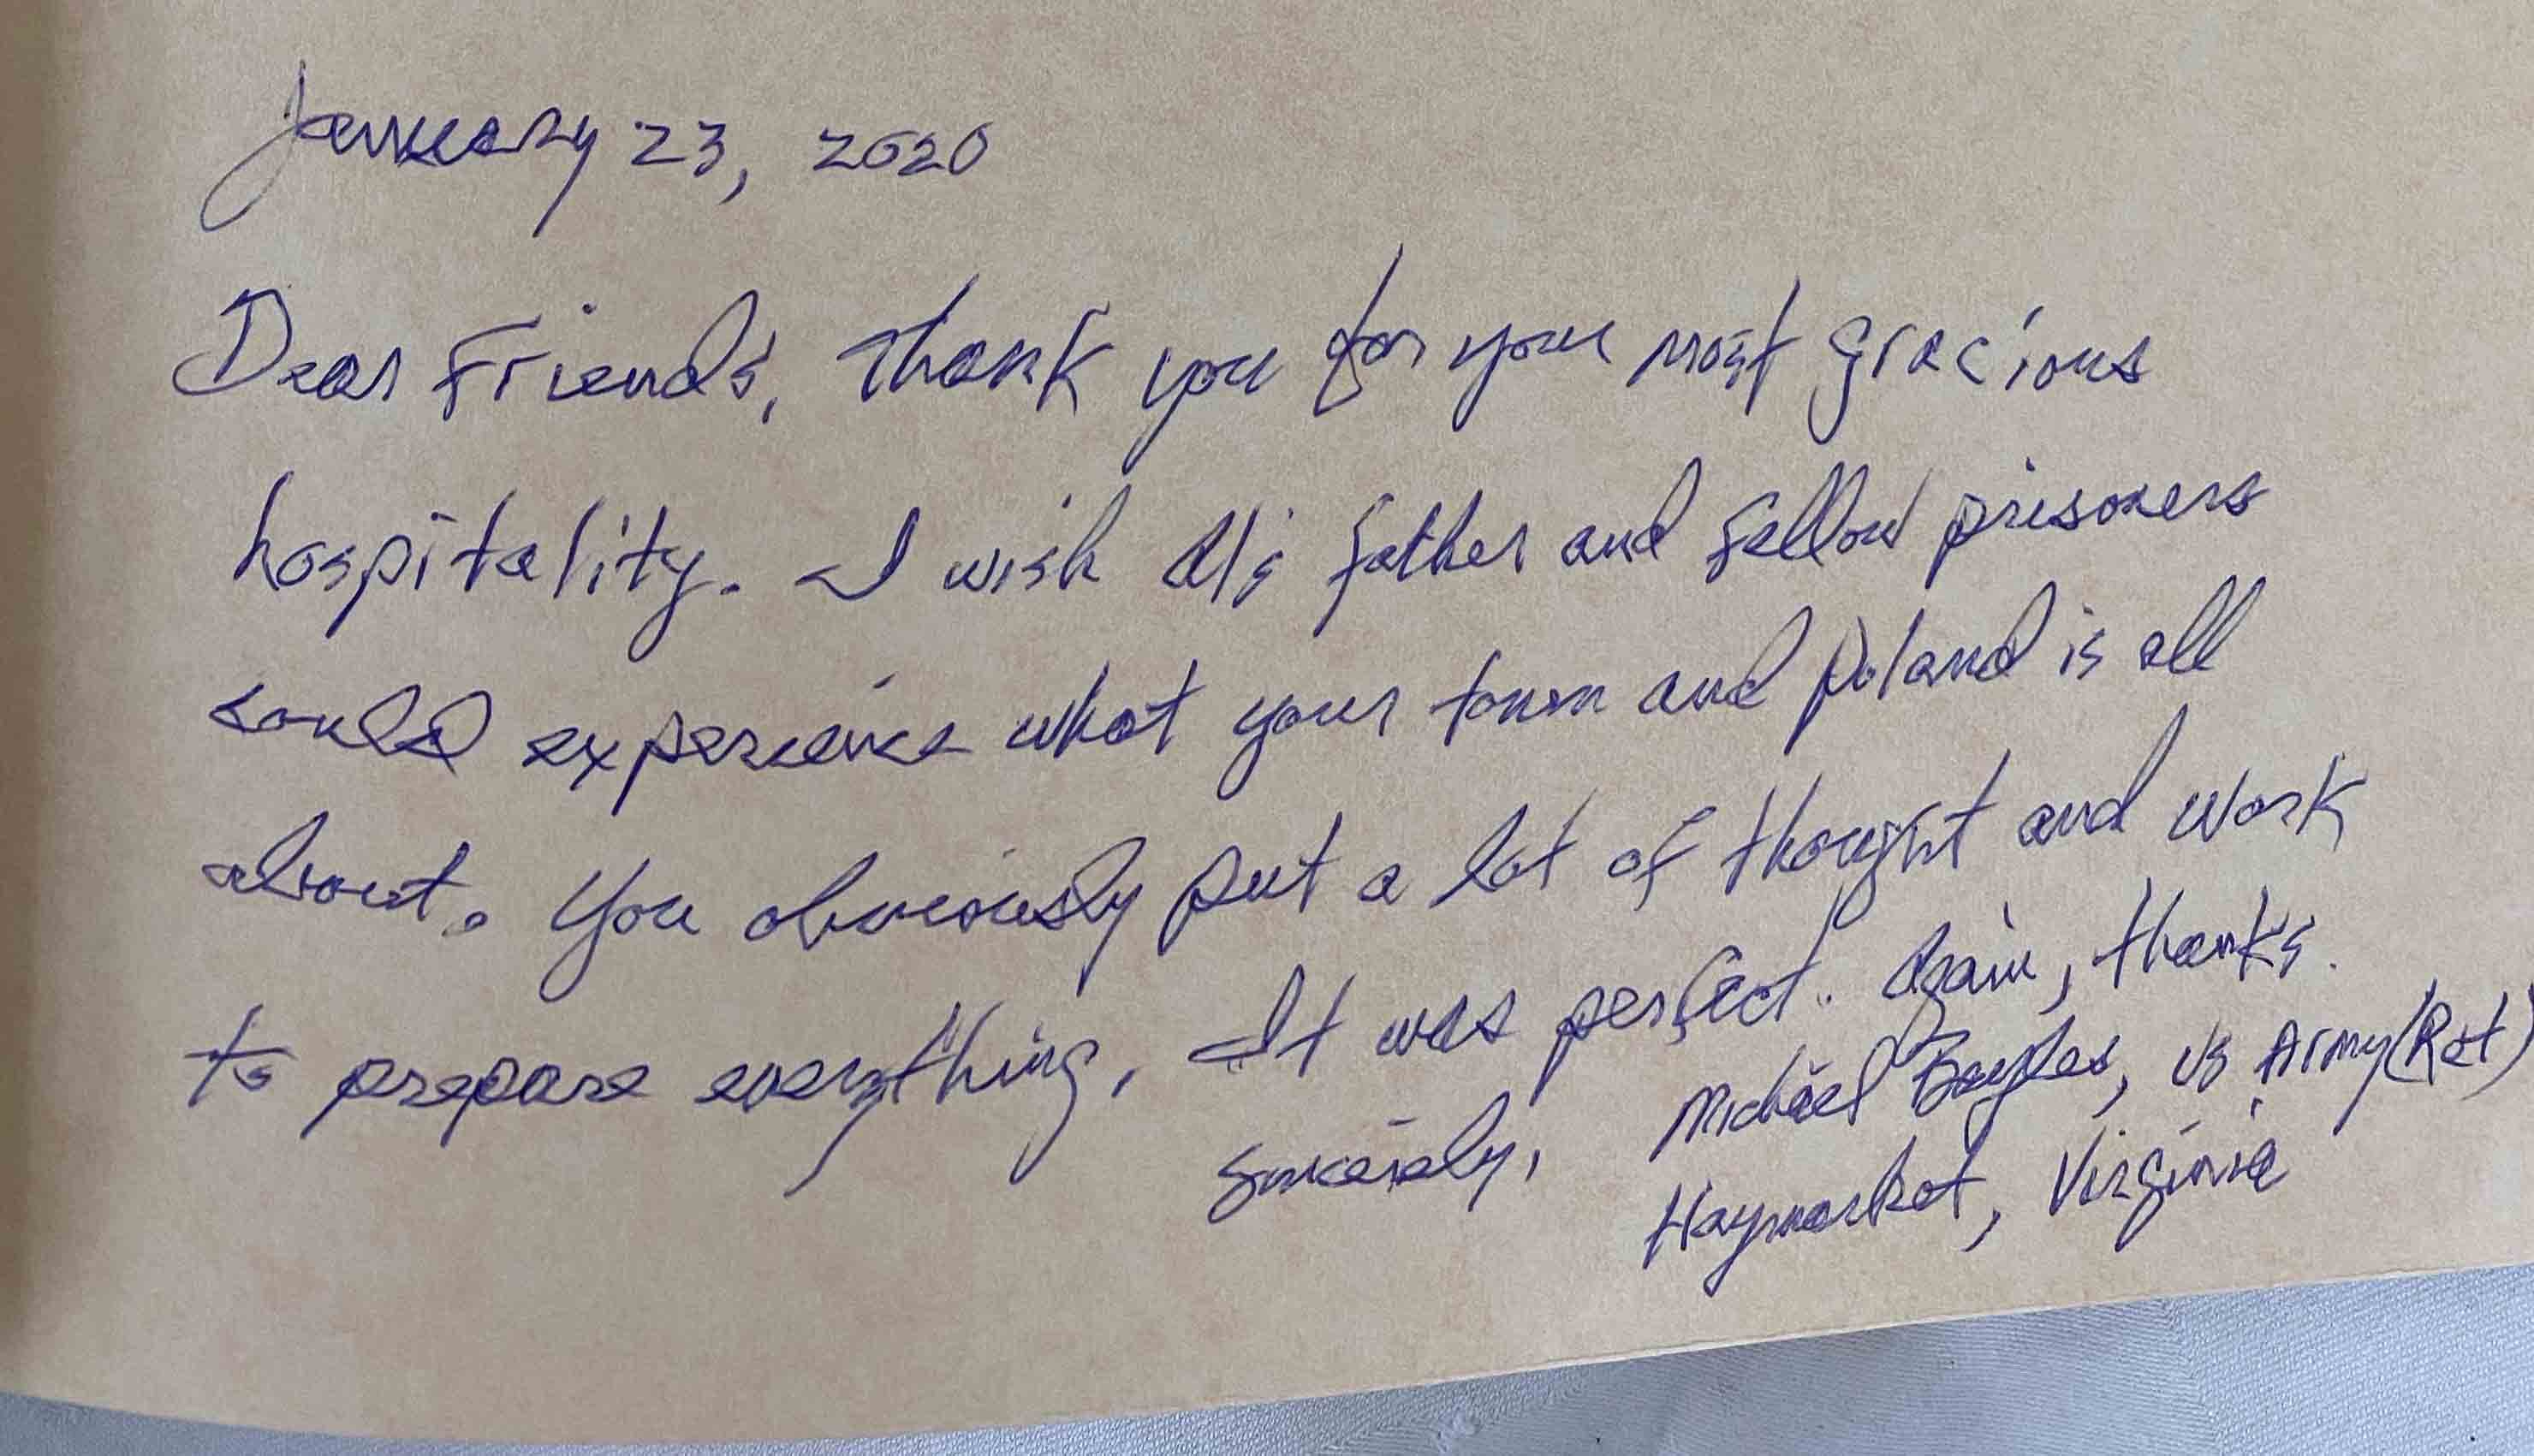 January 23, 2020
Dear Friends, Thank you for your most gracious
hospitality. I wish Al's father and fellow prisoners
could experience what your town and Poland is all
about. You obviously put a lot of thought and work
to prepare everything. It was perfect. Again, thanks.
Sincerely, Michael Bayles, US Army (Ret)
Haymarket, Virginia